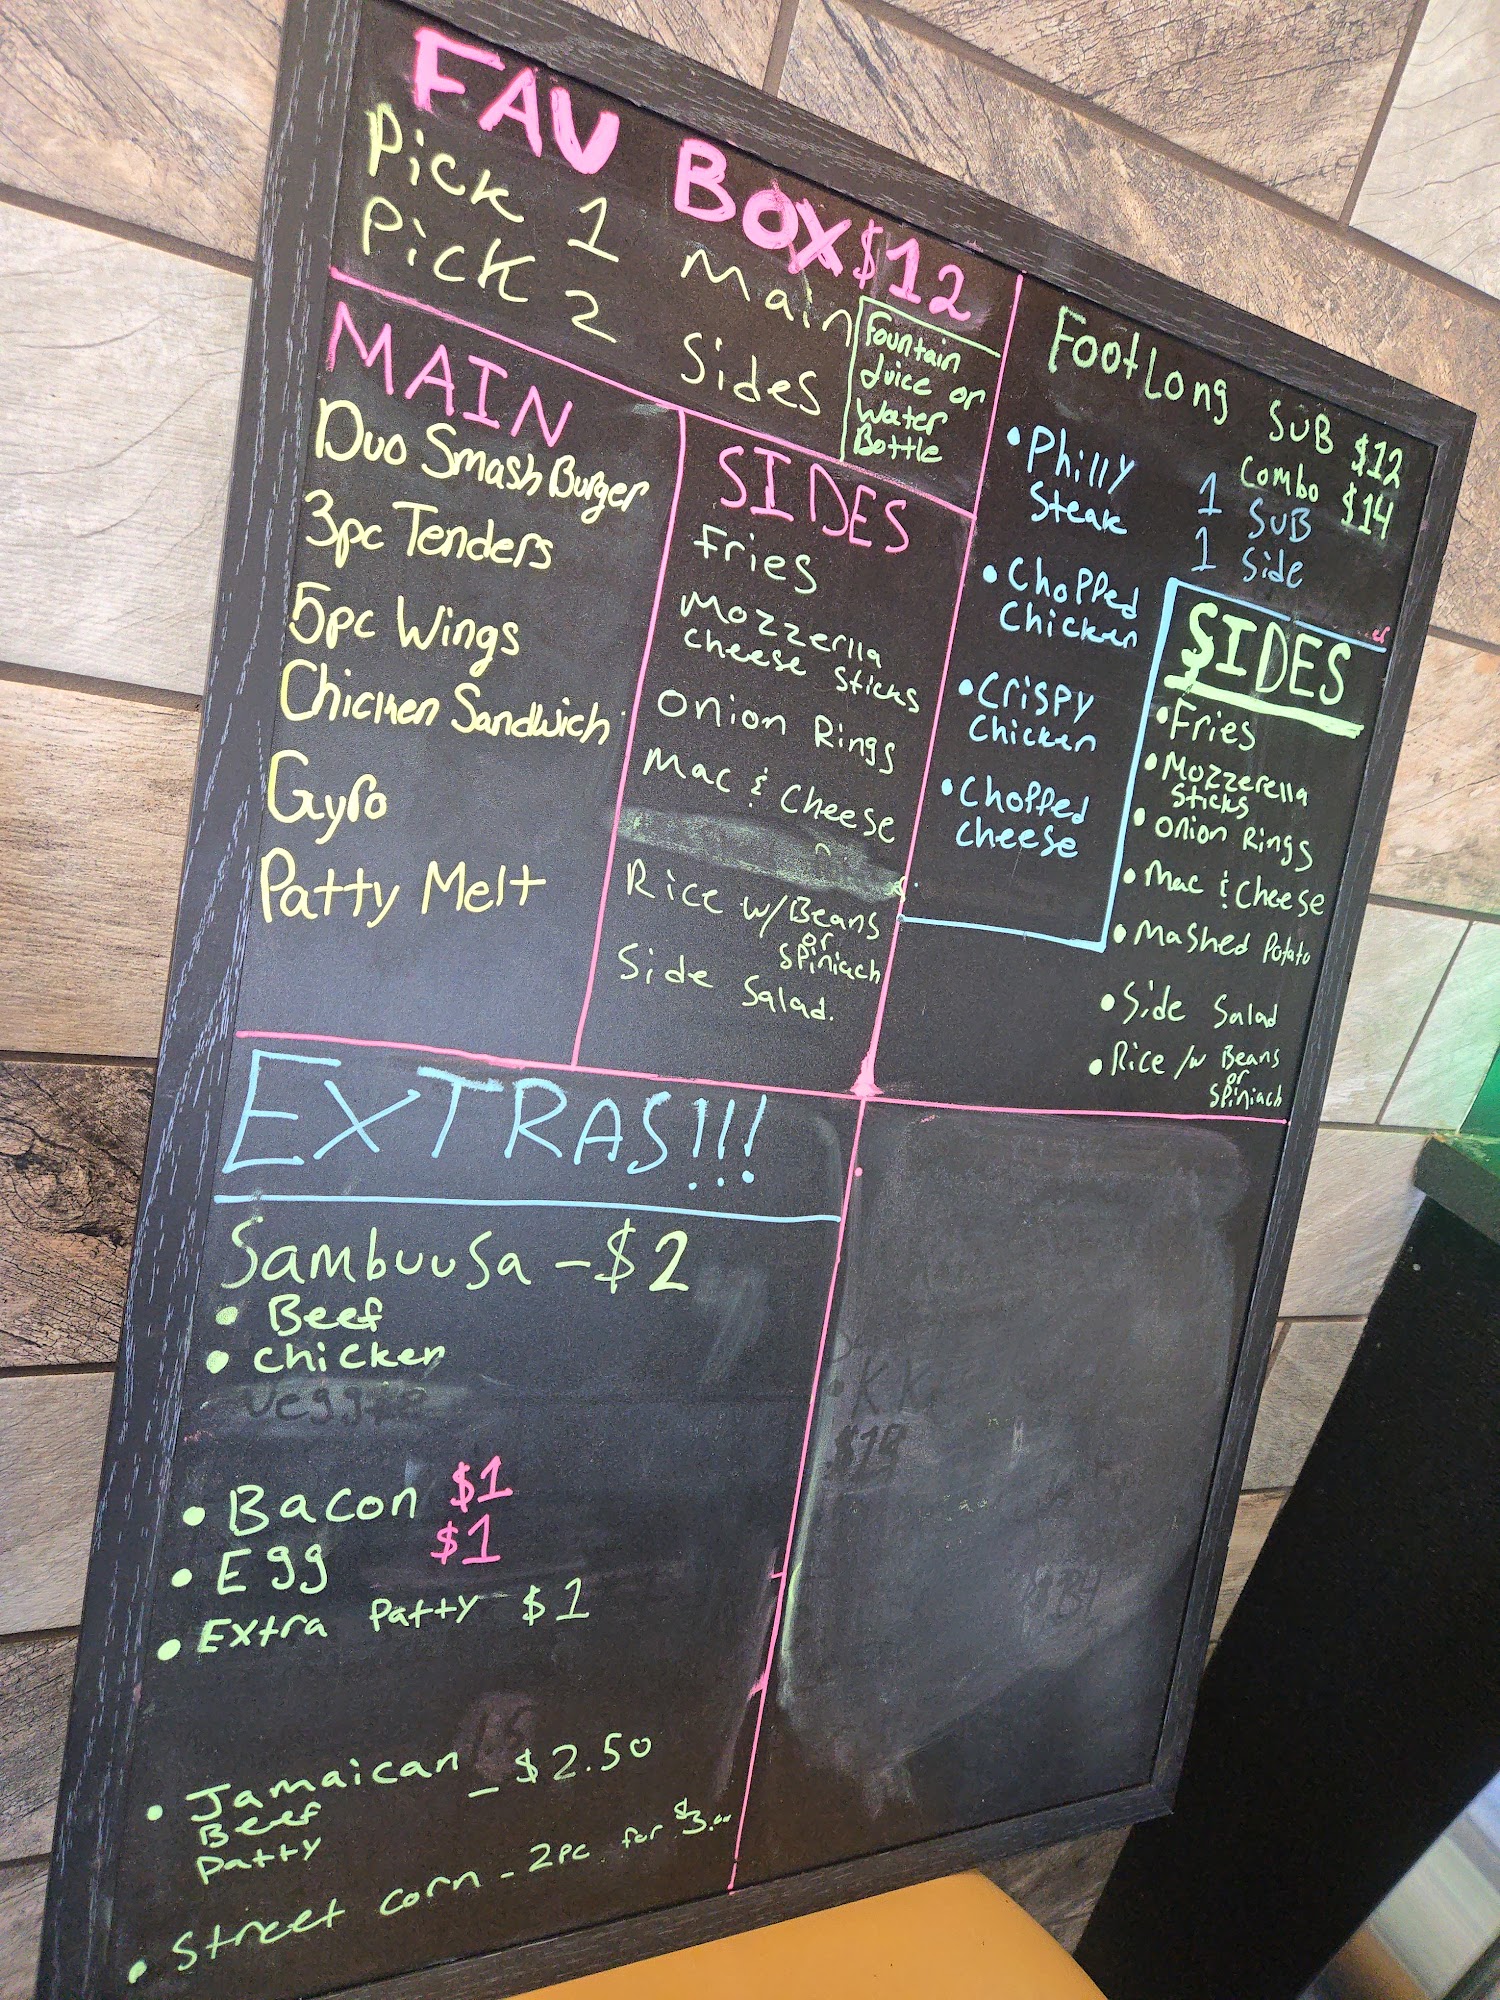 FAV BOX $12
Pick 1 Main
Pick 2 Sides
Fountain
Juice or
Water
Bottle
MAIN
Duo Smash Burger
3pc Tenders
5pc Wings
Chicken Sandwich
Gyro
Patty Melt
SIDES
Fries
Mozzerella
cheese sticks
Onion Rings
Mac & Cheese
Rice w/ Beans
or
Spiniach
Side Salad.
FootLong SUB $12
Combo $14
1 SUB
1 Side
• Philly
Steak
• Chopped
Chicken
• Crispy
Chicken
• Chopped
cheese
SIDES
• Fries
• Mozzerella
Sticks
• Onion Rings
• Mac & Cheese
• Mashed Potato
• Side Salad
• Rice /w Beans
or
Spiniach
EXTRAS!!!
Sambuusa - $2
• Beef
• Chicken
Veggie
• Bacon $1
• Egg $1
• Extra Patty $1
• Jamaican - $2.50
Beef
Patty
• Street corn - 2pc for $3.00